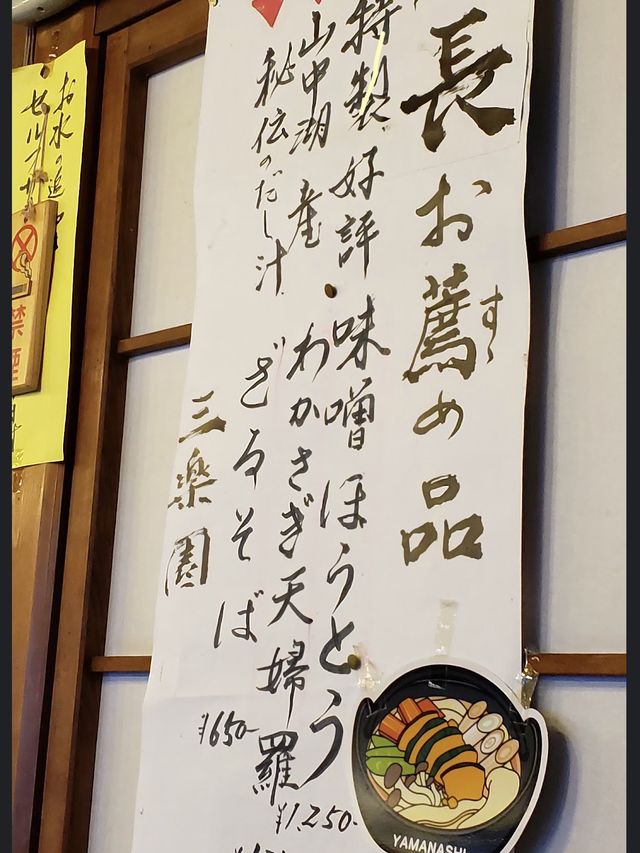 長お薦め品
すゝ
特製好評味噌ほうとう
山中湖産わかさぎ天婦羅
¥1,250-
秘伝のだし汁ざるそば
¥650-
三楽園
お水の追
セルフ
禁煙
YAMANASHI